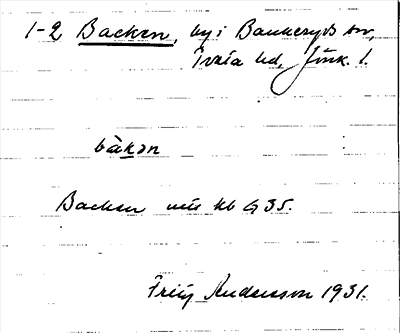 1-2 Backen, by i Bankeryds sn,
Tveta hd, Jönk. l.
bàkən
Backen Kb G 35.
Fritz Andersson 1931.